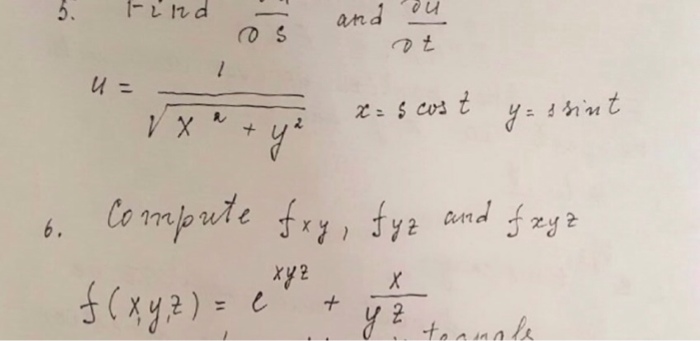 5. Find ∂u/∂s and ∂u/∂t
u = 1/√(x² + y²) x = s cos t y = s sin t
6. Compute fxy, fyz and fxyz
f(x,y,z) = e^xyz + x/yz